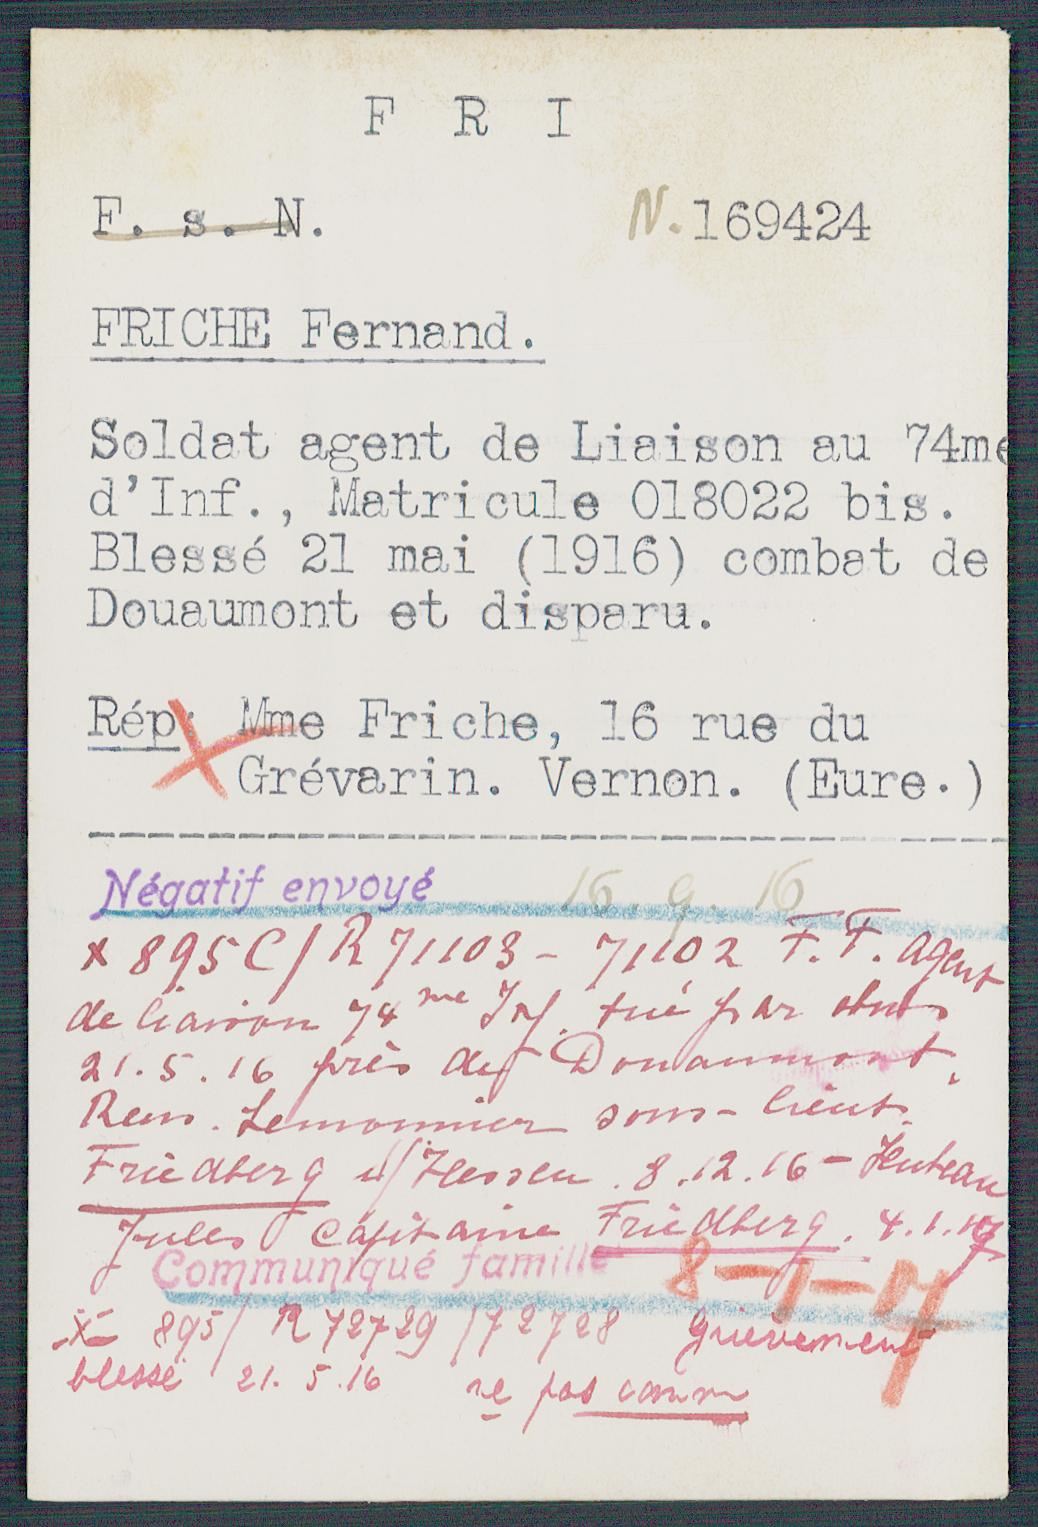 F R I
F. s. N. N. 169424
FRICHE Fernand.
Soldat agent de Liaison au 74me
d'Inf., Matricule 018022 bis.
Blessé 21 mai (1916) combat de
Douaumont et disparu.
Rép: Mme Friche, 16 rue du
Grévarin. Vernon. (Eure.)
Négatif envoyé 16.9.16
x 895 C/ R 71103 - 71102 F. F. agent
de liaison 74me Inf. tué par obus
21.5.16 près de Douaumont.
Rens. Lemonnier sous-lieut.
Friedberg i/Hessen. 8.12.16 - Huteau
Jules Capitaine Friedberg. 4.1.17
Communiqué famille 8-1-17
x 895/ R 72729/72728 grièvement
blessé 21.5.16 ne pas comm